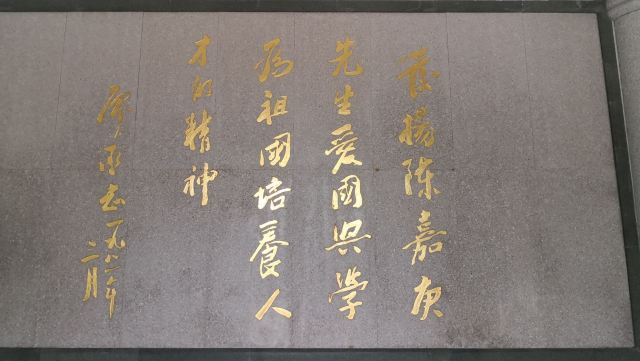 发扬陈嘉庚
先生爱國兴学
为祖國培养人
才的精神
廖承志一九八一年
二月